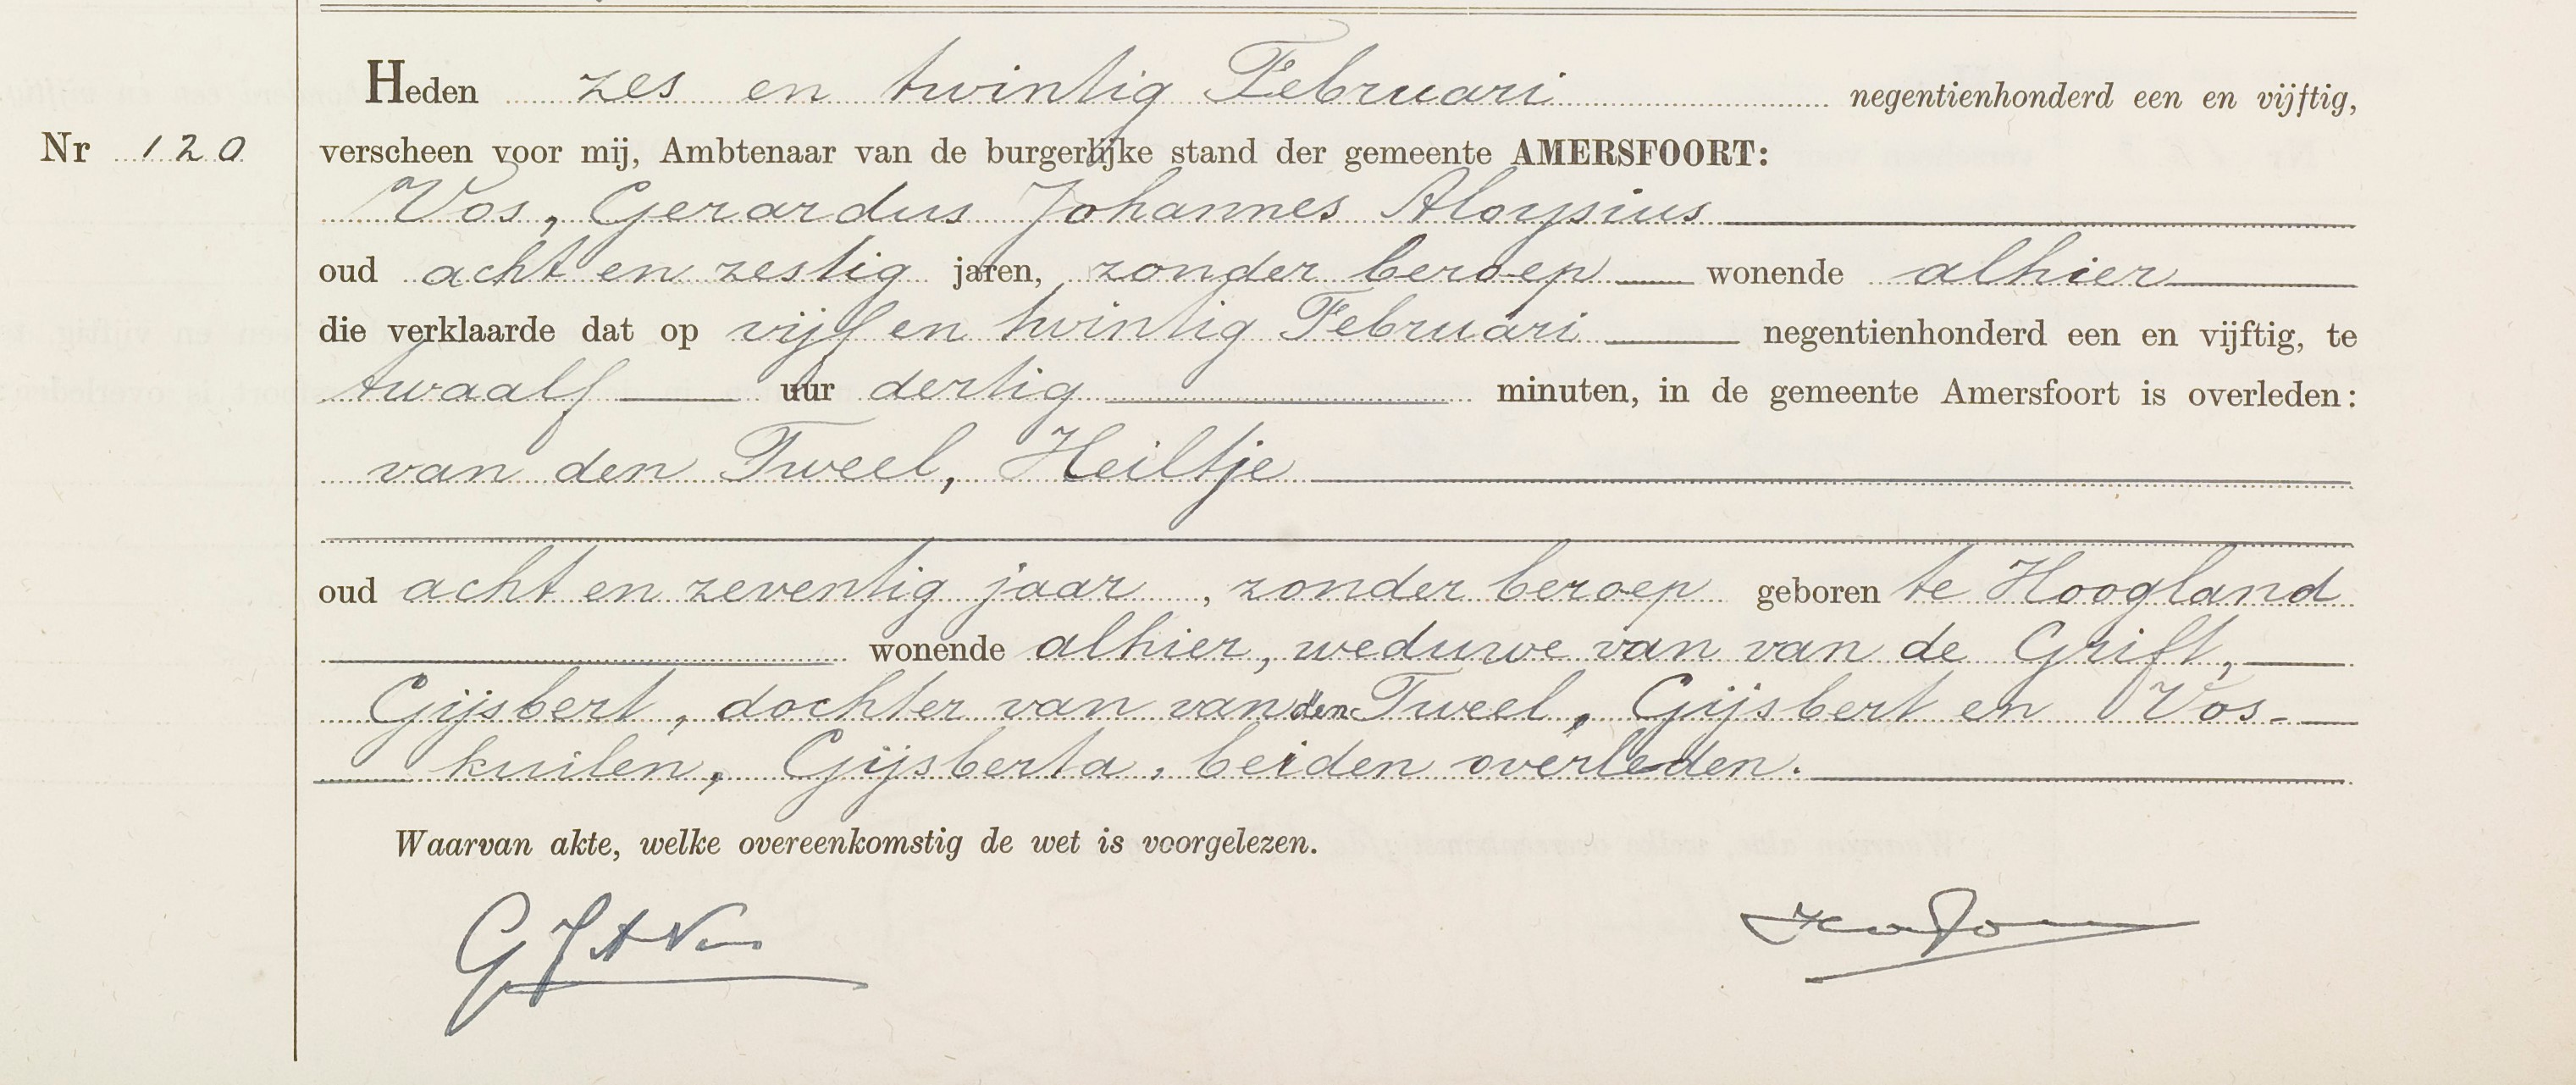 Heden zes en twintig Februari negentienhonderd een en vijftig,
Nr 120
verscheen voor mij, Ambtenaar van de burgerlijke stand der gemeente AMERSFOORT:
Vos, Gerardus Johannes Aloysius
oud acht en zestig jaren, zonder beroep wonende alhier
die verklaarde dat op vijf en twintig Februari negentienhonderd een en vijftig, te
twaalf uur dertig minuten, in de gemeente Amersfoort is overleden:
van den Tweel, Heiltje
oud acht en zeventig jaar, zonder beroep geboren te Hoogland
wonende alhier, weduwe van van de Grift,
Gijsbert, dochter van van den Tweel, Gijsbert en Vos-
kuilen, Gijsberta, beiden overleden.
Waarvan akte, welke overeenkomstig de wet is voorgelezen.
G J A Vos